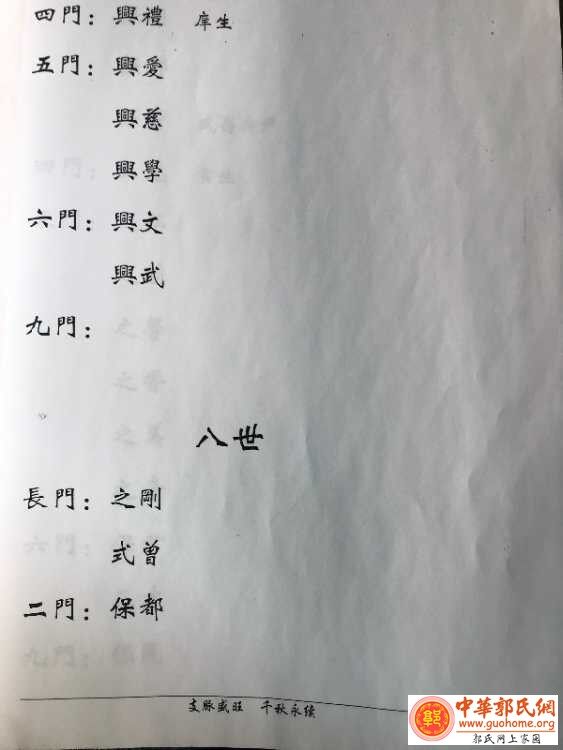 四門：興禮 庠生
五門：興愛
興慈
興學
六門：興文
興武
九門：
八世
長門：之剛
式曾
二門：保都
支脉盛旺 千秋永續
中華郭氏網
www.guohome.org
郭氏网上家园